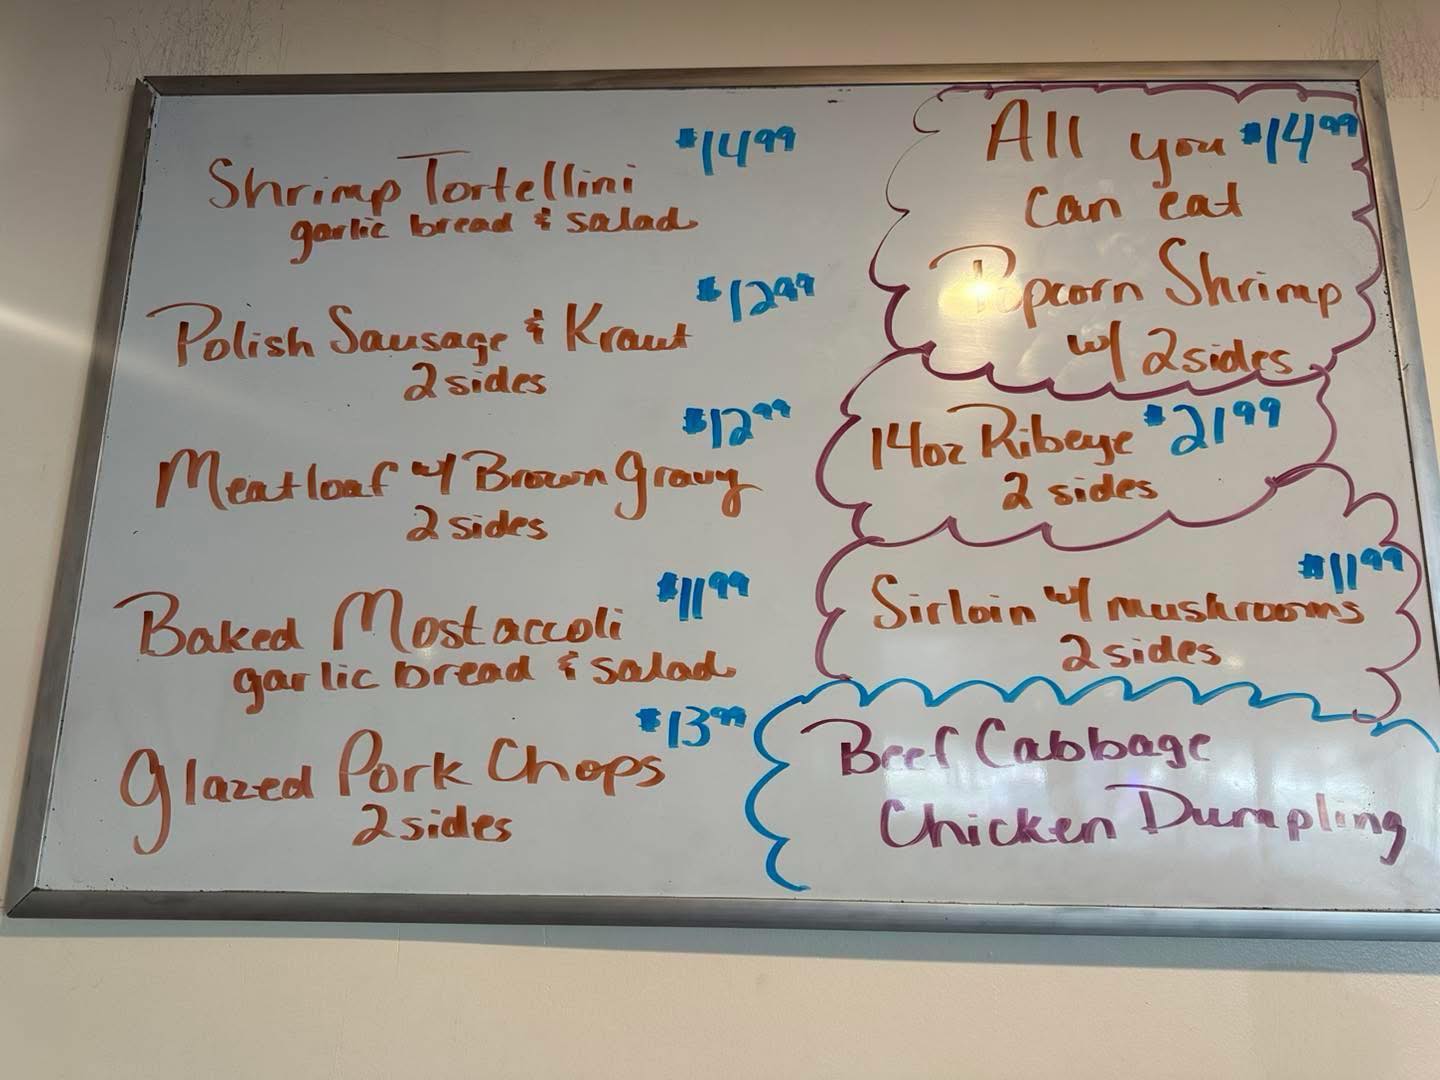 $14.99
Shrimp Tortellini
garlic bread & salad
$12.99
Polish Sausage & Kraut
2 sides
$12.99
Meatloaf w/ Brown Gravy
2 sides
$11.99
Baked Mostaccoli
garlic bread & salad
$13.99
Glazed Pork Chops
2 sides
All you $14.99
can eat
Popcorn Shrimp
w/ 2 sides
14oz Ribeye $21.99
2 sides
$11.99
Sirloin w/ mushrooms
2 sides
Beef Cabbage
Chicken Dumpling